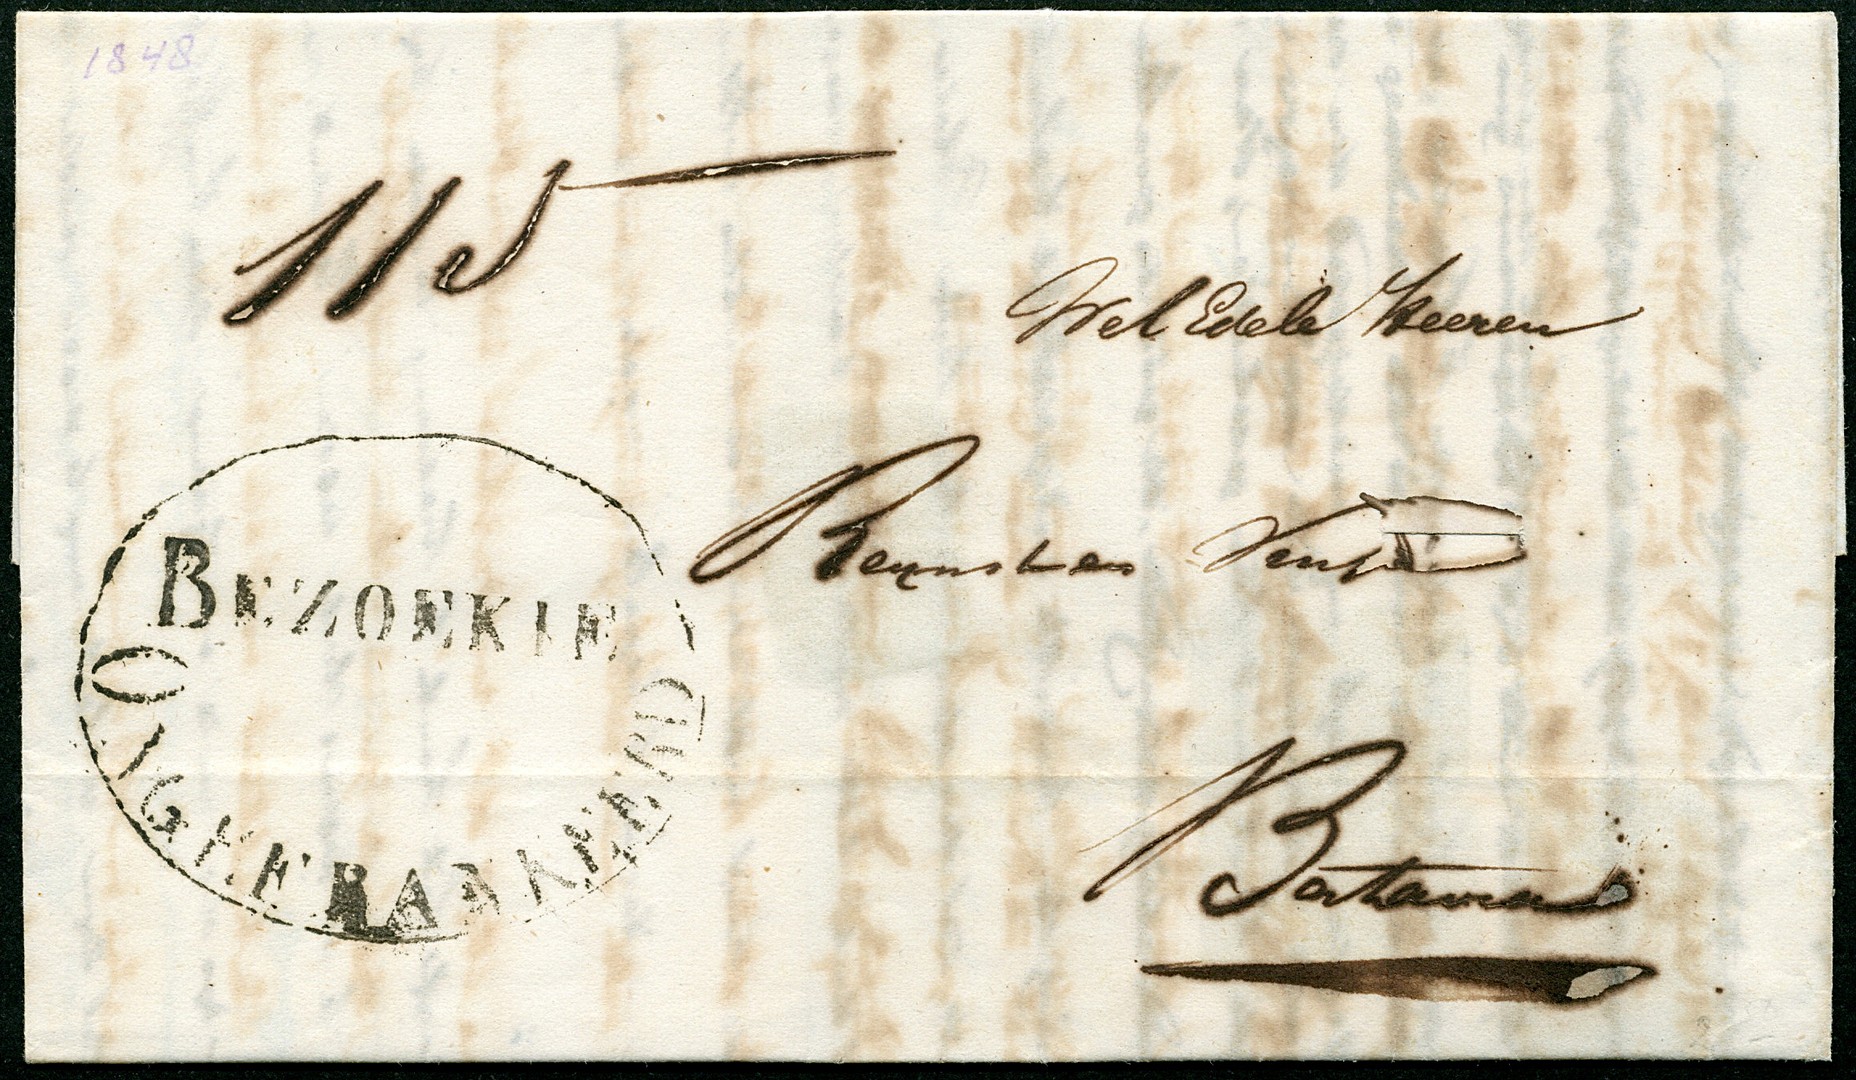 1848
115
Wel Edele Heeren
Reynst en Vins
Batavia
BEZOEKIE
ONGEFRANKEERD